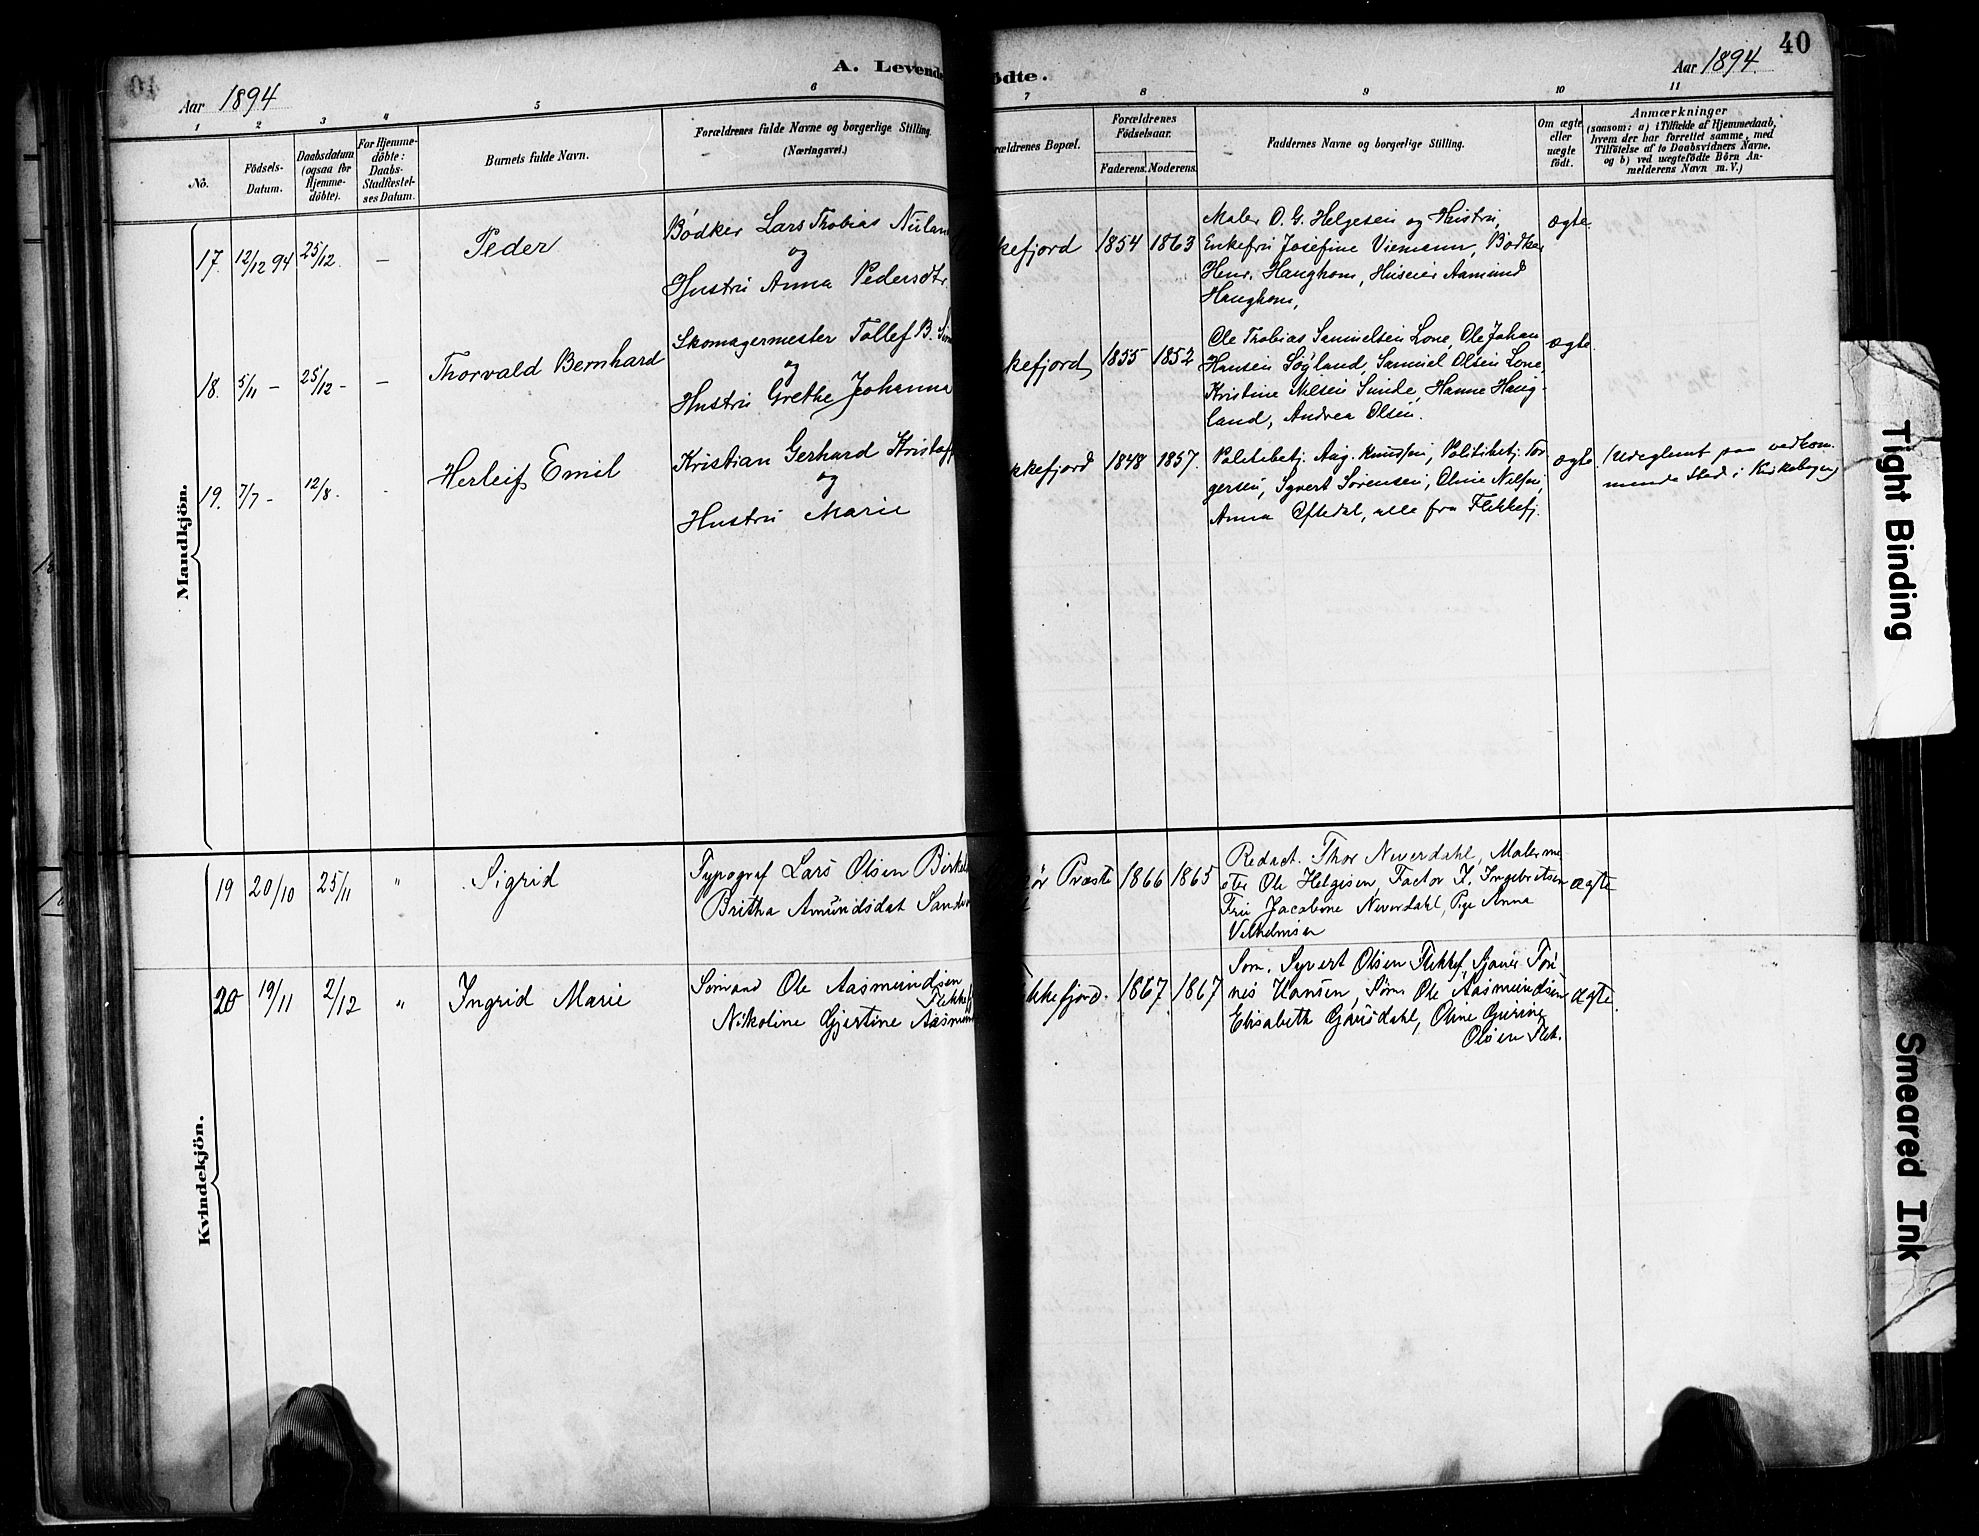 40
A. Levende
ødte.
Aar 1894
Aar 1894.
1 2 3 4 5 6 7 8 9 10 11
No.
Födsels-
Datum.
Daabsdatum
(ogsaa for
Hjemme-
døbte).
For Hjemme-
döbte:
Daabs-
Stadfæstel-
ses Datum.
Barnets fulde Navn.
Forældrenes fulde Navne og borgerlige Stilling.
(Næringsvei.)
rældrenes Bopæl.
Forældrenes
Fødselsaar.
Faderens. Moderens.
Faddernes Navne og borgerlige Stilling.
Om ægte
eller
uægte
født.
Anmærkninger
(saasom: a) i Tilfælde af Hjemmedaab,
hvem der har forrettet samme, med
Tilføielse af to Daabsvidners Navne,
og b) ved uægtefödte Börn An-
melderens Navn m. V.)
Mandkjön.
17. 12/12 94 25/12. — Peder
Bödker Lars Thobias Nuland
og
Hustru Anna Pedersdtr.
kefjord 1854 1863
Maler O. G. Helgesen og Hustru,
Enkefru Josefine Viemann, Bödker
Henr. Haughom, Huseier Aamund
Haughom,
ægte.
18. 5/11 - 25/12 - — Thorvald Bernhard
Skomagermester Tollef B.
og
Hustru Grethe Johanna
kefjord 1855 1852
Ole Tobias Samuelsen Lone, Ole Johan
Hansen Søyland, Samuel Olsen Lone,
Kristine Nilsen Sunde, Hanne Haug-
land, Andrea Olsen.
ægte.
19. 7/7 - 12/8. - Herleif Emil
Kristian Gerhard Kristoff
og
Hustru Marie
kkefjord 1848 1857.
Politibetj. Aug. Knudsen, Politibetj. Tor-
gersen, Syvert Sørensen, Oline Nilsen,
Anna Oftedal, alle fra Flekkefj.
ægte
(Uteglemt paa vedkom-
mende Sted i Kirkebogen)
Kvindekjön.
19 20/10 25/11 " Sigrid
Typograf Lars Olsen Birkel
Britha Amundsdat Sand
ør Præste
1866 1865
Redact. Thor Neverdahl, Malerme
ster Ole Helgesen, Factor I. Ingebretsen
Fru Jacobine Neverdahl, Pige Anna
Vilhelmsen
ægte
20 19/11 2/12 " Ingrid Marie
Sömand Ole Aasmundsen
Flekkef
Nikoline Gjertine Aasmun
kkefjord. 1867 1867
Søm. Syvert Olsen Flekkef,
nes Hansen, Søm. Ole Aasmundsen
Elisabeth Gausdahl, Oline
Olsen Flek.
ægte.
Tight Binding
Smeared Ink